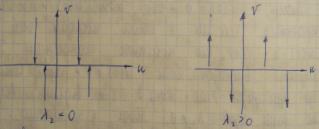 v
u
λ₂ < 0
v
u
λ₂ > 0